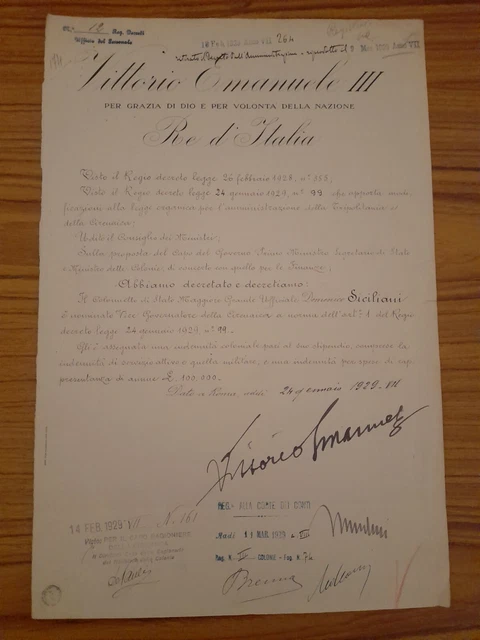 N. 12 Reg. Decreti
Ufficio del Personale
16 FEB. 1929 Anno VII 264
Vittorio Emanuele III
PER GRAZIA DI DIO E PER VOLONTA DELLA NAZIONE
Re d'Italia
Visto il Regio decreto legge 26 febbraio 1928, n° 355;
Visto il Regio decreto legge 24 gennaio 1929, n° 99 che apporta modi,
ficazioni alla legge organica per l'amministrazione della Tripolitania e
della Cirenaica;
Udito il Consiglio dei Ministri;
Sulla proposta del Capo del Governo Primo Ministro Segretario di Stato
e Ministro delle Colonie, di concerto con quello per le Finanze;
Abbiamo decretato e decretiamo:
Il Colonnello di Stato Maggiore Grande Ufficiale Domenico Siciliani
è nominato Vice Governatore della Cirenaica a norma dell'art° 1 del Regio
decreto legge 24 gennaio 1929, n° 99.
Gli è assegnata una indennità coloniale pari al due stipendio, comprese le
indennità di servizio attivo e quella militare, e una indennità per spese di rap,
presentanza di annue £. 100.000.
Dato a Roma, addì 24 gennaio 1929 - VII
Vittorio Emanuele
14 FEB. 1929 VII N. 161
REG. ALLA CORTE DEI CONTI
Addì 11 MAR. 1929 A. VII
Mussolini
Reg. N. COLONIE - Fog. N.